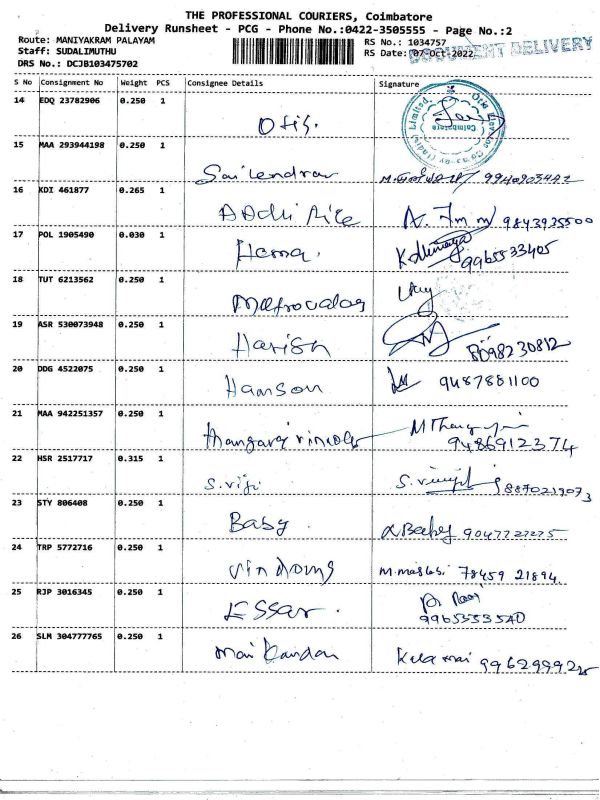 THE PROFESSIONAL COURIERS, Coimbatore
Delivery Runsheet - PCG - Phone No.:0422-3505555 - Page No.:2
Route: MANIYAKRAM PALAYAM
RS No.: 1034757
Staff: SUDALIMUTHU
RS Date: 07-Oct-2022
DOCUMENT DELIVERY
DRS No.: DCJB103475702
S No Consignment No Weight PCS Consignee Details Signature
14 EDQ 23782906 0.250 1 Otis.
Coimbatore
15 MAA 293944198 0.250 1 Sailendran
16 KDI 461877 0.265 1 9843935500
17 POL 1905490 0.030 1 Hema. 9965533405
18 TUT 6213562 0.250 1
19 ASR 530073948 0.250 1 Harish 8098230812
20 DDG 4522075 0.250 1 Hamson 9487881100
21 MAA 942251357 0.250 1 9486912374
22 HSR 2517717 0.315 1 S.viji 8870219073
23 STY 806408 0.250 1 Baby
24 TRP 5772716 0.250 1 78459 21894
25 RJP 3016345 0.250 1 Essar.
26 SLM 304777765 0.250 1 Mani Kandan